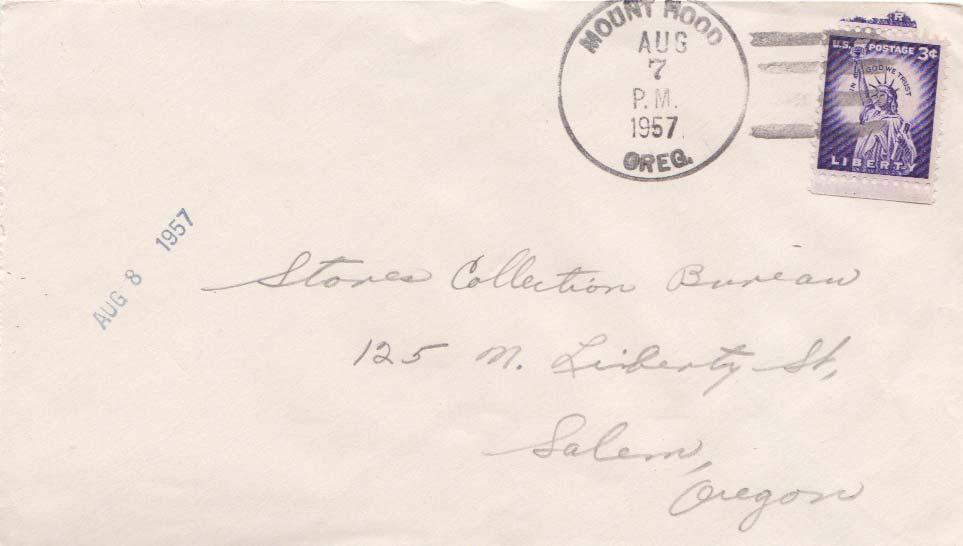 MOUNT HOOD
AUG
7
P.M.
1957
OREG.
U.S. POSTAGE 3¢
IN GOD WE TRUST
LIBERTY
AUG 8 1957
Stores Collection Bureau
125 N. Liberty St,
Salem,
Oregon